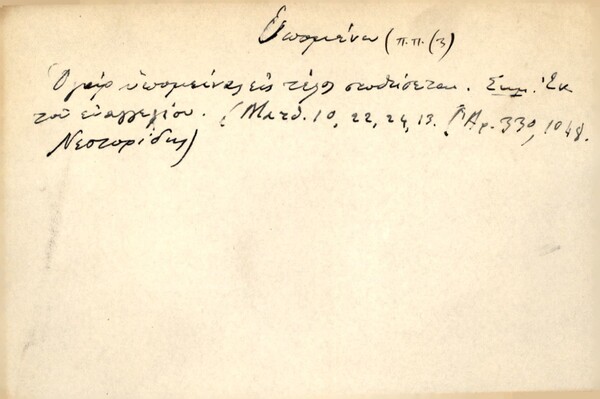 Ὑπομένω (π.π. (3)
Ὁ γάρ ὑπομείνας εἰς τέλος σωθήσεται. Σημ. Ἐκ
τοῦ εὐαγγελίου. (Ματθ. 10, 22, 24, 13. Ἀρ. 330, 1048.
Νεστορίδης)